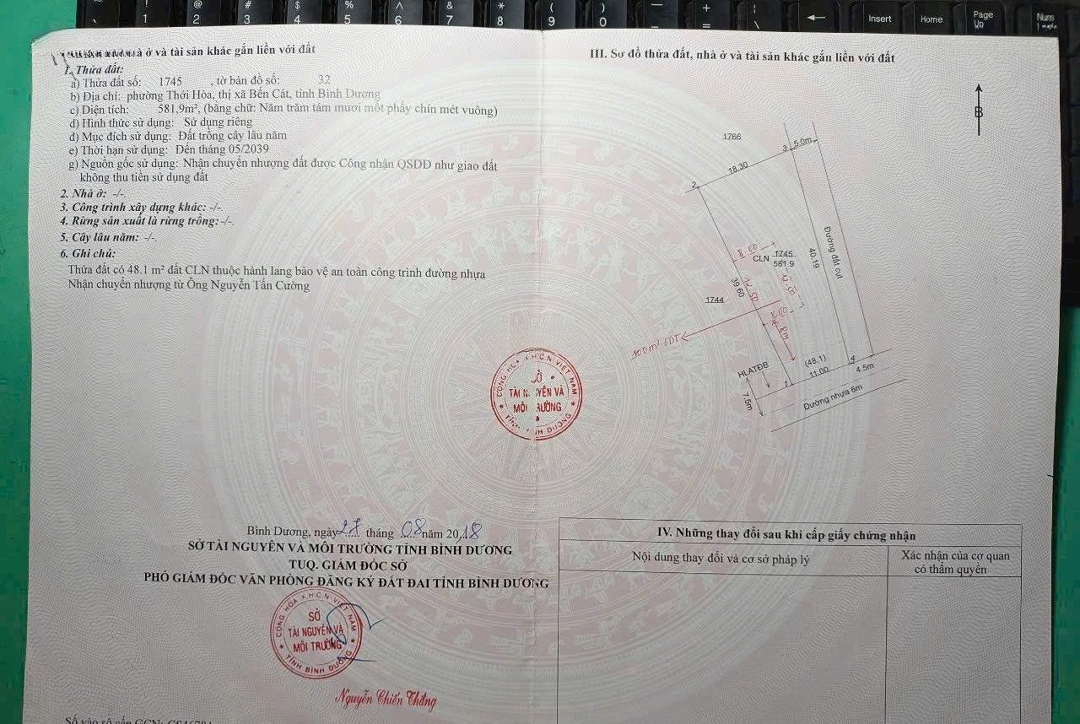 ở và tài sản gắn liền với đất
1. Thửa đất:
a) Thửa đất số: 1745 , tờ bản đồ số: 32
b) Địa chỉ: phường Thới Hòa, thị xã Bến Cát, tỉnh Bình Dương
c) Diện tích: 581,9m², (bằng chữ: Năm trăm tám mươi mốt phẩy chín mét vuông)
d) Hình thức sử dụng: Sử dụng riêng
đ) Mục đích sử dụng: Đất trồng cây lâu năm
e) Thời hạn sử dụng: Đến tháng 05/2039
g) Nguồn gốc sử dụng: Nhận chuyển nhượng đất được Công nhận QSDĐ như giao đất
không thu tiền sử dụng đất
2. Nhà ở: -/-.
3. Công trình xây dựng khác: -/-.
4. Rừng sản xuất là rừng trồng: -/-.
5. Cây lâu năm: -/-.
6. Ghi chú:
Thửa đất có 48.1 m² đất CLN thuộc hành lang bảo vệ an toàn công trình đường nhựa
Nhận chuyển nhượng từ Ông Nguyễn Tấn Cường
Bình Dương, ngày 27 tháng 08 năm 2018
SỞ TÀI NGUYÊN VÀ MÔI TRƯỜNG TỈNH BÌNH DƯƠNG
TUQ. GIÁM ĐỐC SỞ
PHÓ GIÁM ĐỐC VĂN PHÒNG ĐĂNG KÝ ĐẤT ĐAI TỈNH BÌNH DƯƠNG
CỘNG HÒA X.H.C.N VIỆT NAM
SỞ
TÀI NGUYÊN VÀ
MÔI TRƯỜNG
TỈNH BÌNH DƯƠNG
Nguyễn Chiến Thắng
III. Sơ đồ thửa đất, nhà ở và tài sản khác gắn liền với đất
B
1766
3
5.0m
18.30
2
Đường đất cụt
8.00
CLN
1745
581.9
40.19
39.60
12.50
12.50
1744
8.00
8M
100m² LDT
(48.1)
4
HLATĐB
11.00
4.5m
1
7.5m
Đường nhựa 6m
CỘNG HÒA X.H.C.N VIỆT NAM
SỞ
TÀI NGUYÊN VÀ
MÔI TRƯỜNG
TỈNH BÌNH DƯƠNG
IV. Những thay đổi sau khi cấp giấy chứng nhận
Nội dung thay đổi và cơ sở pháp lý
Xác nhận của cơ quan
có thẩm quyền
Insert
Home
Page
Num